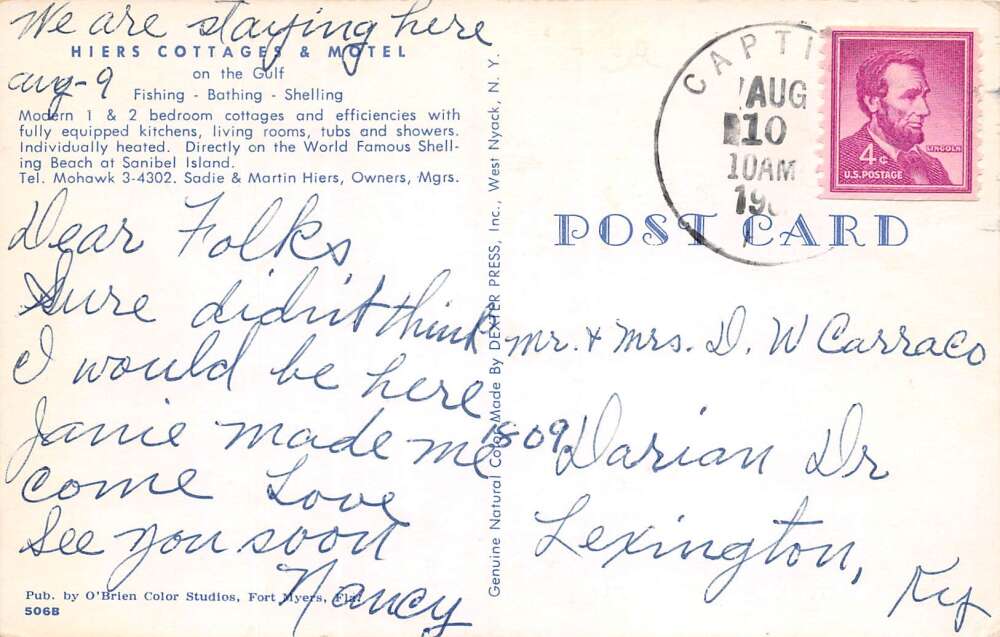 We are staying here
HIERS COTTAGES & MOTEL
on the Gulf
aug-9
Fishing - Bathing - Shelling
Modern 1 & 2 bedroom cottages and efficiencies with
fully equipped kitchens, living rooms, tubs and showers.
Individually heated. Directly on the World Famous Shell-
ing Beach at Sanibel Island.
Tel. Mohawk 3-4302. Sadie & Martin Hiers, Owners, Mgrs.
Dear Folks
Sure didn't think
I would be here
Janie made me
come Love
See you soon
Nancy
Pub. by O'Brien Color Studios, Fort Myers, Fla.
506B
Genuine Natural Color Made By DEXTER PRESS, Inc., West Nyack, N. Y.
CAPTI
AUG
10
10AM
19
LINCOLN
4¢
U.S. POSTAGE
POST CARD
Mr. & Mrs. D. W Carraco
1809 Darian Dr
Lexington,
Ky